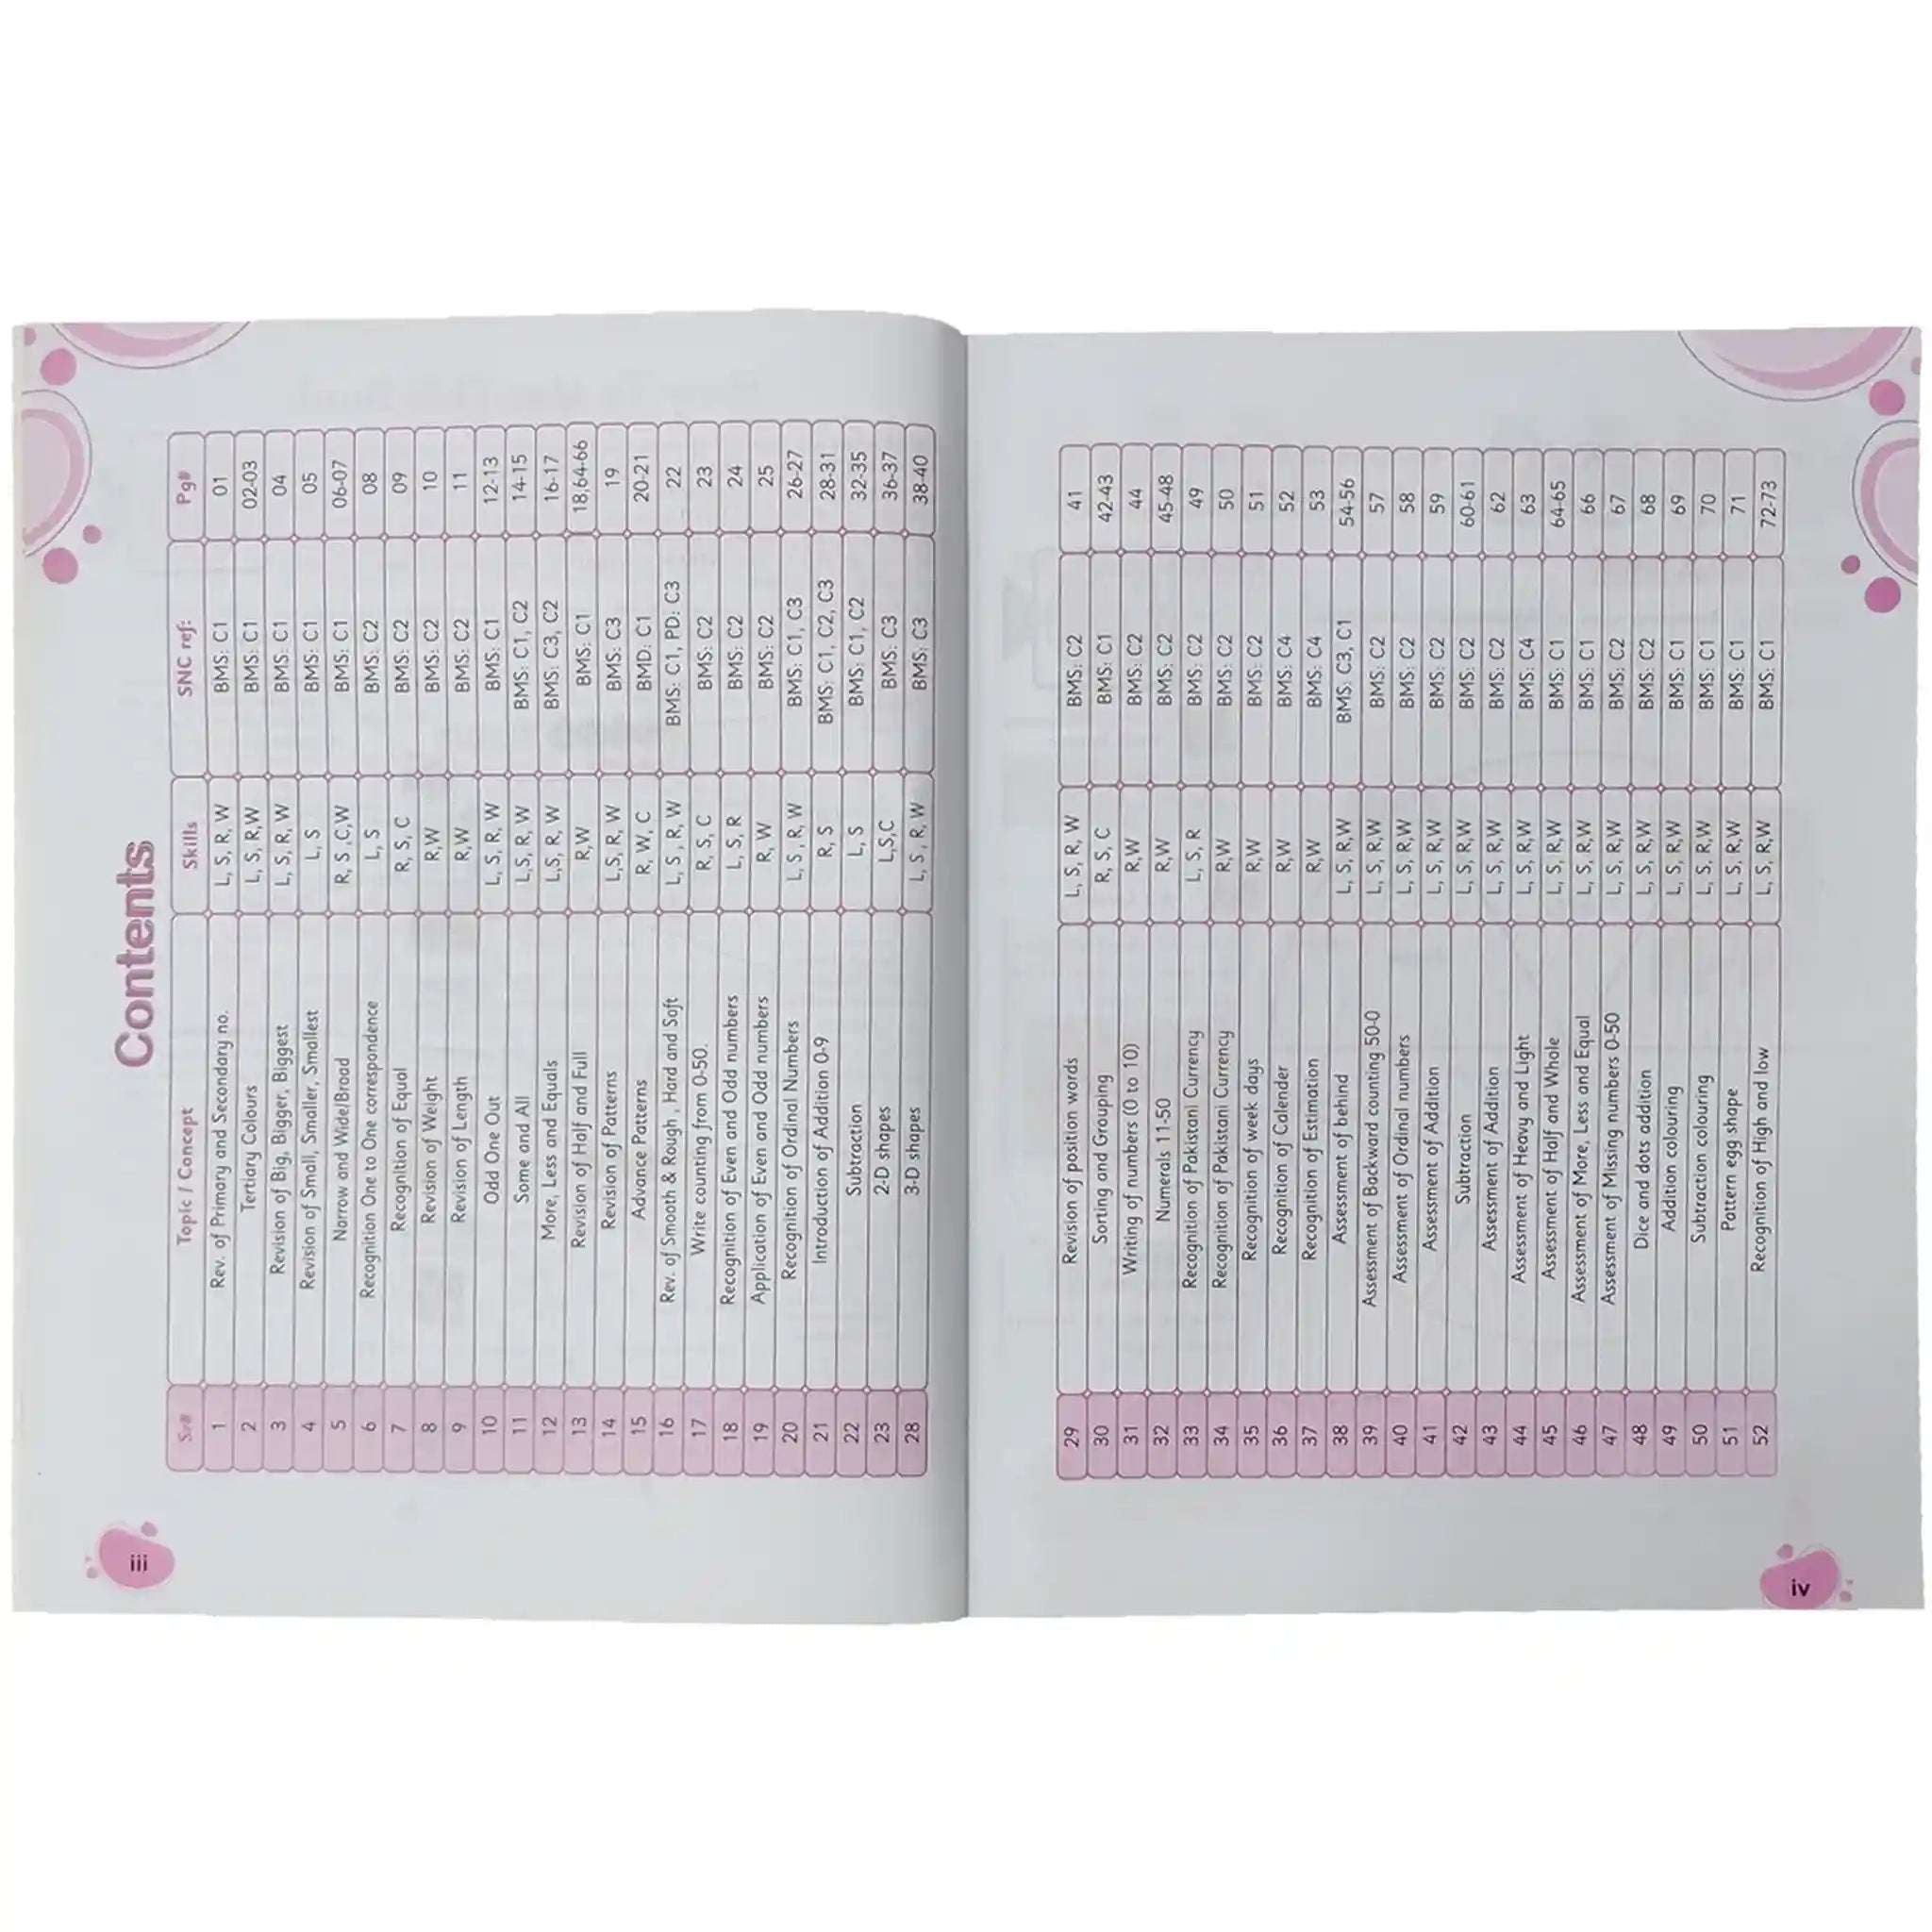 Contents
Sr# Topic / Concept Skills SNC ref: Pg#
1 Rev. of Primary and Secondary no. L, S, R, W BMS: C1 01
2 Tertiary Colours L, S, R,W BMS: C1 02-03
3 Revision of Big, Bigger, Biggest L, S, R, W BMS: C1 04
4 Revision of Small, Smaller, Smallest L, S BMS: C1 05
5 Narrow and Wide/Broad R, S ,C,W BMS: C1 06-07
6 Recognition One to One correspondence L, S BMS: C2 08
7 Recognition of Equal R, S, C BMS: C2 09
8 Revision of Weight R,W BMS: C2 10
9 Revision of Length R,W BMS: C2 11
10 Odd One Out L, S, R, W BMS: C1 12-13
11 Some and All L,S, R, W BMS: C1, C2 14-15
12 More, Less and Equals L,S, R, W BMS: C3, C2 16-17
13 Revision of Half and Full R,W BMS: C1 18,64-66
14 Revision of Patterns L,S, R, W BMS: C3 19
15 Advance Patterns R, W, C BMD: C1 20-21
16 Rev. of Smooth & Rough , Hard and Soft L, S , R, W BMS: C1, PD: C3 22
17 Write counting from 0-50. R, S, C BMS: C2 23
18 Recognition of Even and Odd numbers L, S, R BMS: C2 24
19 Application of Even and Odd numbers R, W BMS: C2 25
20 Recognition of Ordinal Numbers L, S , R, W BMS: C1, C3 26-27
21 Introduction of Addition 0-9 R, S BMS: C1, C2, C3 28-31
22 Subtraction L, S BMS: C1, C2 32-35
23 2-D shapes L,S,C BMS: C3 36-37
28 3-D shapes L, S , R, W BMS: C3 38-40
iii
29 Revision of position words L, S, R, W BMS: C2 41
30 Sorting and Grouping R, S, C BMS: C1 42-43
31 Writing of numbers (0 to 10) R,W BMS: C2 44
32 Numerals 11-50 R,W BMS: C2 45-48
33 Recognition of Pakistani Currency L, S, R BMS: C2 49
34 Recognition of Pakistani Currency R,W BMS: C2 50
35 Recognition of week days R,W BMS: C2 51
36 Recognition of Calender R,W BMS: C4 52
37 Recognition of Estimation R,W BMS: C4 53
38 Assessment of behind L, S, R,W BMS: C3, C1 54-56
39 Assessment of Backward counting 50-0 L, S, R,W BMS: C2 57
40 Assessment of Ordinal numbers L, S, R,W BMS: C2 58
41 Assessment of Addition L, S, R,W BMS: C2 59
42 Subtraction L, S, R,W BMS: C2 60-61
43 Assessment of Addition L, S, R,W BMS: C2 62
44 Assessment of Heavy and Light L, S, R,W BMS: C4 63
45 Assessment of Half and Whole L, S, R,W BMS: C1 64-65
46 Assessment of More, Less and Equal L, S, R,W BMS: C1 66
47 Assessment of Missing numbers 0-50 L, S, R,W BMS: C2 67
48 Dice and dots addition L, S, R,W BMS: C2 68
49 Addition colouring L, S, R,W BMS: C1 69
50 Subtraction colouring L, S, R,W BMS: C1 70
51 Pattern egg shape L, S, R,W BMS: C1 71
52 Recognition of High and low L, S, R,W BMS: C1 72-73
iv